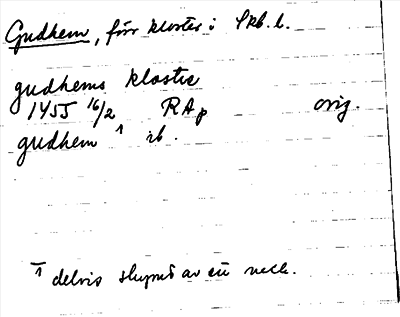 Gudhem, förr kloster i Skb. l.
gudhems kloster
1455 16/2 RAp orig.
gudhem 1 ib.
1 delvis skymd av en veck.